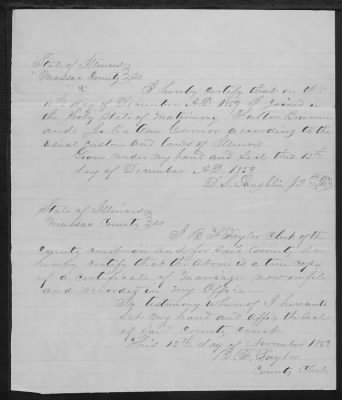 State of Illinois
Massac County } SS
I hereby certify that on the
11th day of December A.D. 1859 I joined in
the Holy State of Matrimony
and Ann Connor according to the
usual custom and laws of Illinois
Given under my hand and Seal this 12th
day of December A.D. 1859
Laughlin J.P.
State of Illinois
Massac County } SS
I Taylor Clerk of the
county court in and for said County do
hereby certify that the above is a true copy
of a certificate of Marriage now on file
and recorded in my Office
In testimony whereof I hereunto
set my hand and affix the Seal
of said County Court
This 12th day of November
Taylor
County Clerk